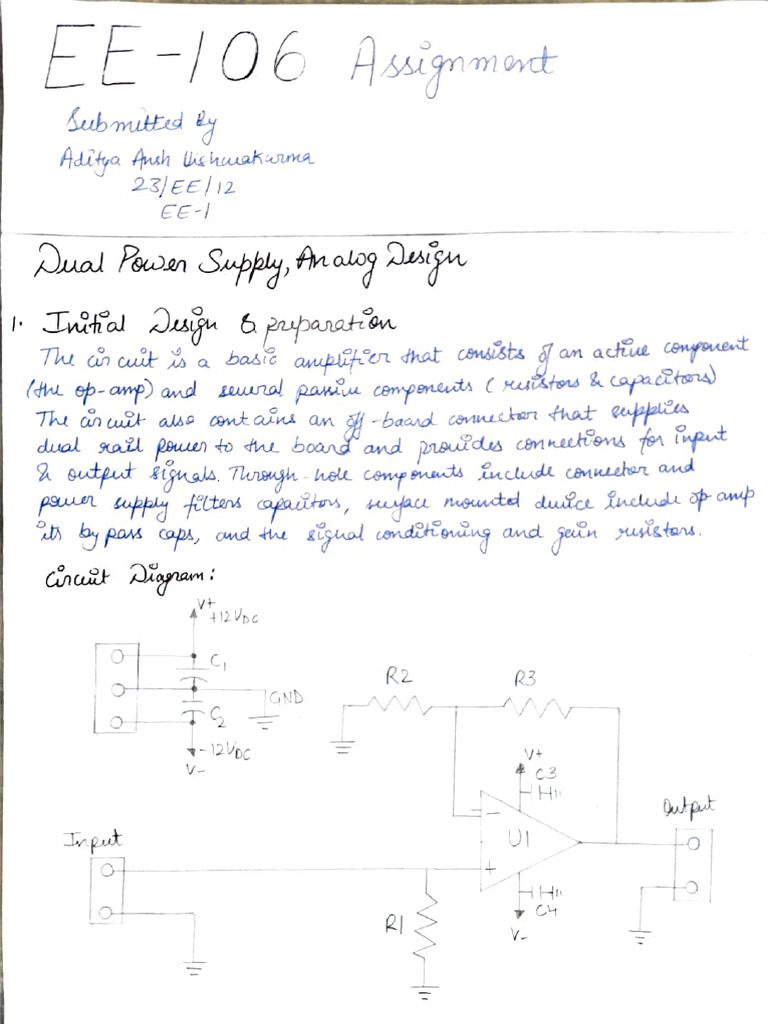 EE-106 Assignment
Submitted By
Aditya Ansh Vishwakarma
23/EE/12
EE-1
Dual Power Supply, Analog Design
1. Initial Design & preparation
The circuit is a basic amplifier that consists of an active component
(the op-amp) and several passive components (resistors & capacitors)
The circuit also contains an off-board connector that supplies
dual rail power to the board and provides connections for input
& output signals. Through-hole components include connector and
power supply filters capacitors, surface mounted device include op amp
its by pass caps, and the signal conditioning and gain resistors.
Circuit Diagram:
V+
+12VDC
C1
GND
C2
-12VDC
V-
R2
R3
V+
C3
Output
Input
-
U1
+
C4
R1
V-